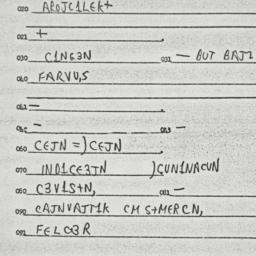 020 APOJC1LEK+
021 +
030 C1NG3N 031 — BUT BAJ1
040 FARVU,S
041 —
042 — 043 —
060 CEJN =)CEJN
070 IND1CE3JN )CUN1NACUN
080 C3V1S+N, 081 —
090 CAJNVAJTM1K CM S+MERCN,
092 FELC3R